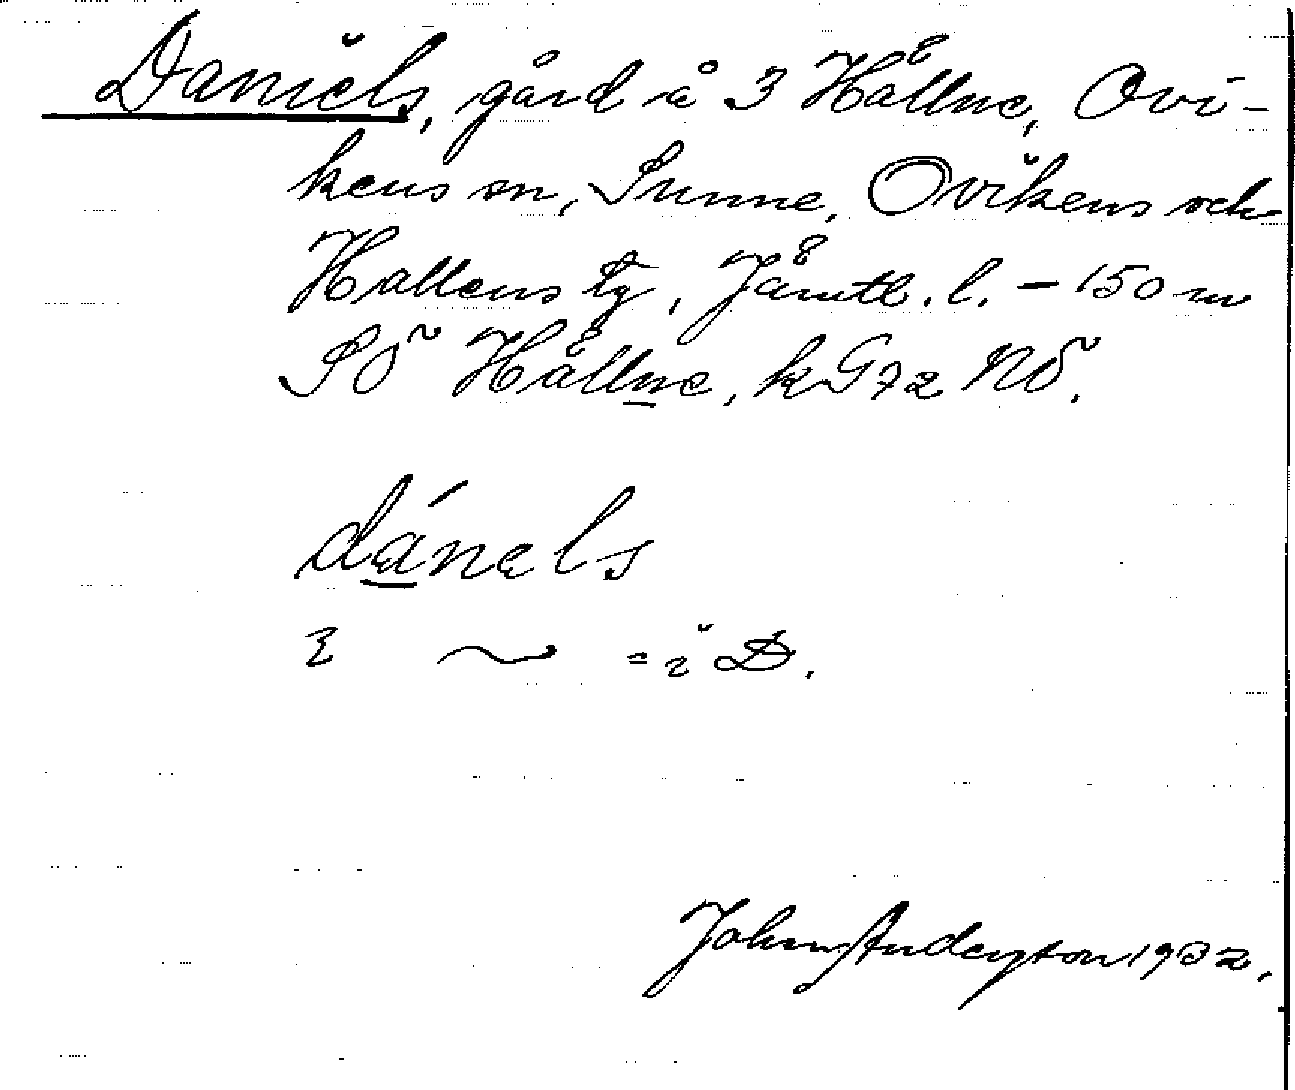 Daniels, gård å 3 Hållne, Ovi-
kens sn, Sunne, Ovikens och
Hallens tg, Jämtl. l. – 150 m
SÖ Hållne, kG72 NÖ.
dánels
~ = i D.
John Anderzton 1932.